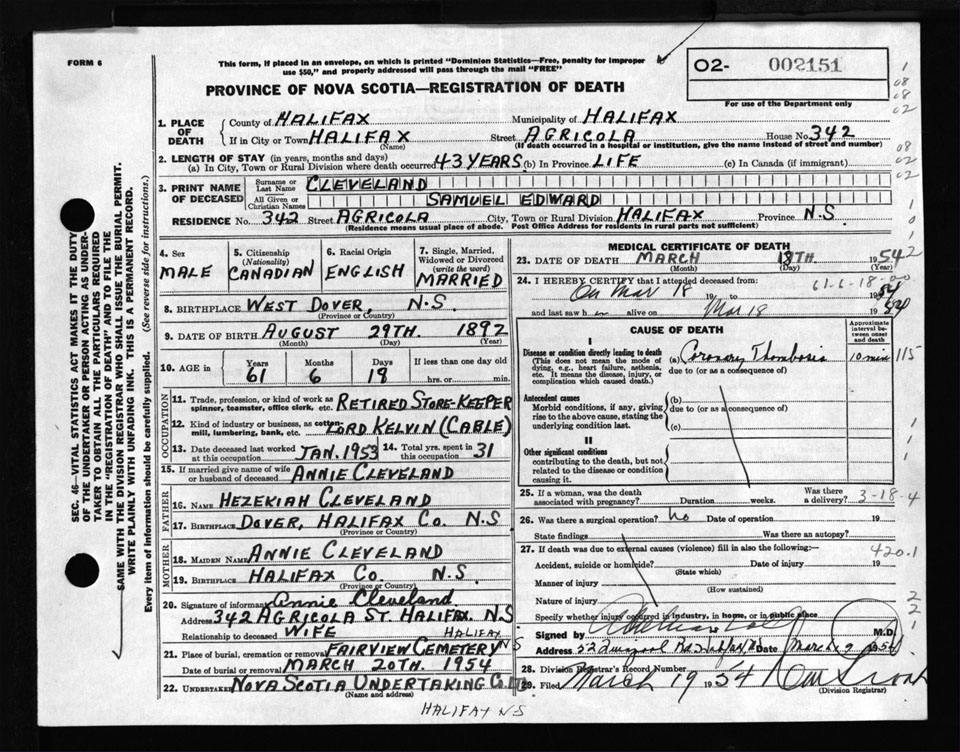 FORM 6
This form, if placed in an envelope, on which is printed "Dominion Statistics—Free, penalty for improper
use $50," and properly addressed will pass through the mail "FREE"
PROVINCE OF NOVA SCOTIA—REGISTRATION OF DEATH
O2- 002151
For use of the Department only
1. PLACE OF DEATH
County of HALIFAX Municipality of HALIFAX
If in City or Town HALIFAX Street AGRICOLA House No. 342
(Name) (If death occurred in a hospital or institution, give the name instead of street and number)
2. LENGTH OF STAY (in years, months and days)
(a) In City, Town or Rural Division where death occurred 43 YEARS (b) In Province LIFE (c) In Canada (if immigrant)
3. PRINT NAME OF DECEASED
Surname or Last Name CLEVELAND
All Given or Christian Names SAMUEL EDWARD
RESIDENCE No. 342 Street AGRICOLA City, Town or Rural Division HALIFAX Province N.S
(Residence means usual place of abode. Post Office Address for residents in rural parts not sufficient)
4. Sex MALE
5. Citizenship (Nationality) CANADIAN
6. Racial Origin ENGLISH
7. Single, Married, Widowed or Divorced (write the word) MARRIED
8. BIRTHPLACE WEST DOVER, N.S
(Province or Country)
9. DATE OF BIRTH AUGUST 29TH. 1892
(Month) (Day) (Year)
10. AGE in Years 61 Months 6 Days 19 If less than one day old
hrs. or min.
OCCUPATION
11. Trade, profession, or kind of work as spinner, teamster, office clerk, etc. RETIRED STORE-KEEPER
12. Kind of industry or business, as cotton-mill, lumbering, bank, etc. LORD KELVIN (CABLE)
13. Date deceased last worked at this occupation JAN. 1953 14. Total yrs. spent in this occupation 31
15. If married give name of wife or husband of deceased ANNIE CLEVELAND
FATHER
16. Name HEZEKIAH CLEVELAND
17. Birthplace DOVER, HALIFAX CO. N.S
(Province or Country)
MOTHER
18. Maiden Name ANNIE CLEVELAND
19. Birthplace HALIFAX CO. N.S
(Province or Country)
20. Signature of informant Annie Cleveland
Address 342 AGRICOLA ST. HALIFAX. N.S
Relationship to deceased WIFE
21. Place of burial, cremation or removal FAIRVIEW CEMETERY HALIFAX NS
Date of burial or removal MARCH 20TH. 1954
22. Undertaker NOVA SCOTIA UNDERTAKING CO. LTD
(Name and address)
HALIFAX N S
MEDICAL CERTIFICATE OF DEATH
23. DATE OF DEATH MARCH 18TH. 1954
(Month) (Day) (Year)
24. I HEREBY CERTIFY that I attended deceased from:
61-6-18-00
On Mar 18 19 to 19 54
and last saw h alive on Mar 18 19 54
CAUSE OF DEATH
Approximate interval between onset and death
I
Disease or condition directly leading to death (a) Coronary Thombosis 10 min 115
(This does not mean the mode of dying, e.g., heart failure, asthenia, etc. It means the disease, injury, or complication which caused death.)
due to (or as a consequence of)
Antecedent causes
Morbid conditions, if any, giving rise to the above cause, stating the underlying condition last.
(b)
due to (or as a consequence of)
(c)
II
Other significant conditions
contributing to the death, but not related to the disease or condition causing it.
25. If a woman, was the death associated with pregnancy? Duration weeks. Was there a delivery? 3-18-4
26. Was there a surgical operation? no Date of operation 19
State findings Was there an autopsy?
27. If death was due to external causes (violence) fill in also the following:— 420.1
Accident, suicide or homicide? Date of injury 19
(State which)
Manner of injury
(How sustained)
Nature of injury
Specify whether injury occurred in industry, in home, or in public place
Signed by M.D.
Address Date March 19 54
28. Division Registrar's Record Number
29. Filed March 19 1954
(Division Registrar)
SEC. 46—VITAL STATISTICS ACT MAKES IT THE DUTY
OF THE UNDERTAKER OR PERSON ACTING AS UNDER-
TAKER TO OBTAIN ALL THE PARTICULARS REQUIRED
IN THE "REGISTRATION OF DEATH" AND TO FILE THE
SAME WITH THE DIVISION REGISTRAR WHO SHALL ISSUE THE BURIAL PERMIT.
WRITE PLAINLY WITH UNFADING INK. THIS IS A PERMANENT RECORD.
Every item of information should be carefully supplied. (See reverse side for instructions.)